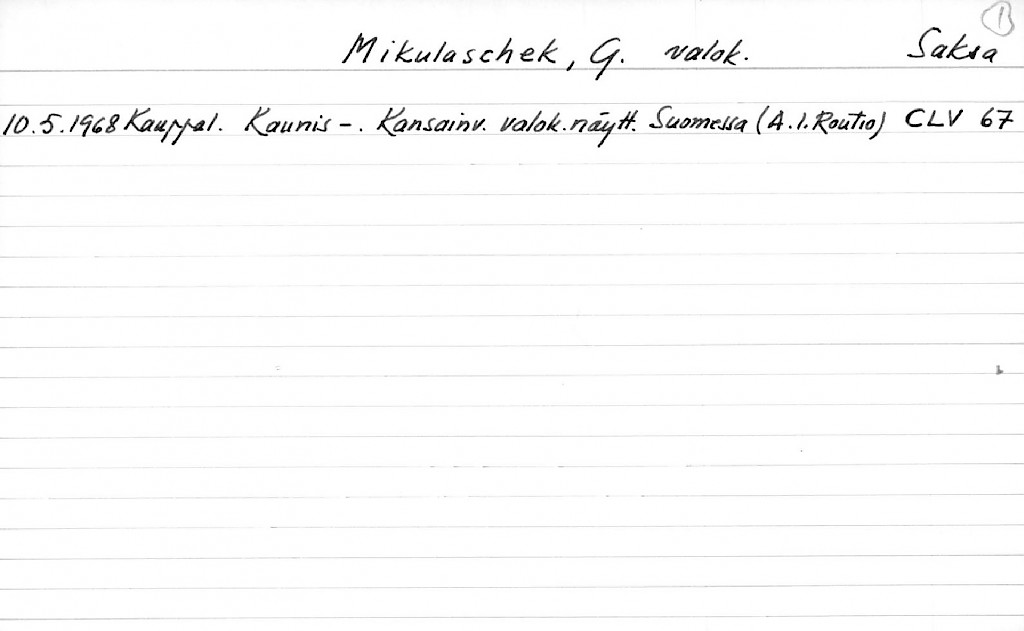 1
Mikulaschek, G. valok. Saksa
10.5.1968 Kauppal. Kaunis -. Kansainv. valok.näytt. Suomessa (A.I.Routio) CLV 67